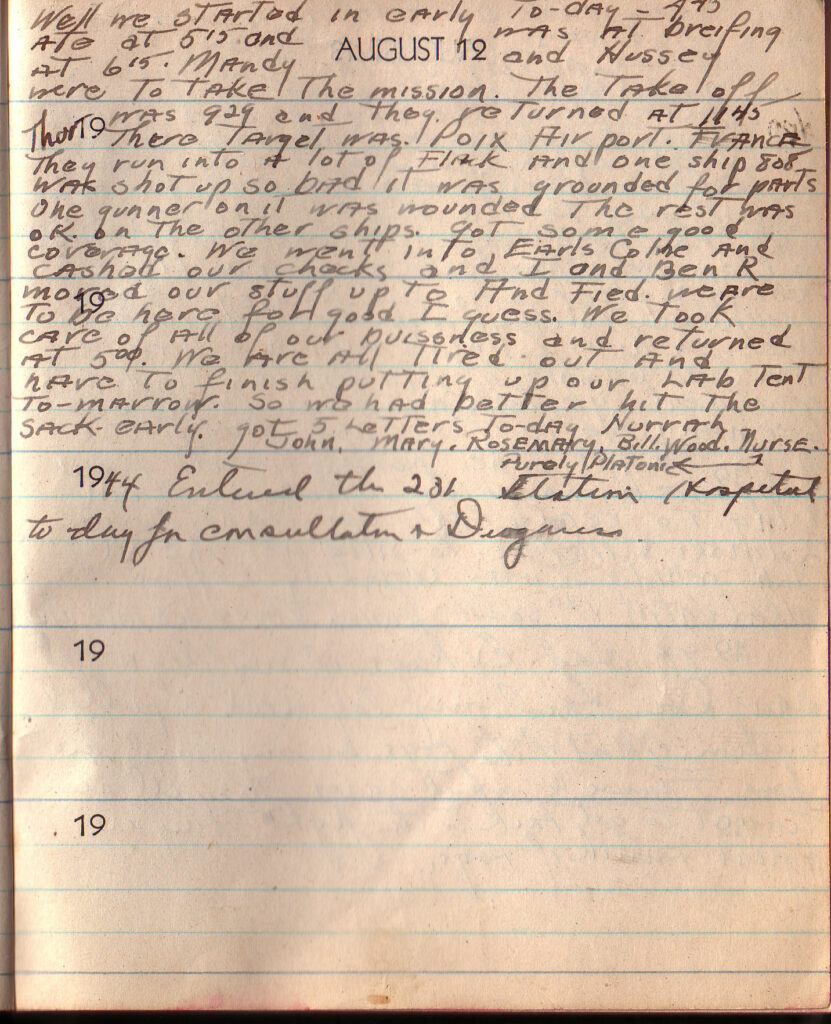 Well we started in early To-day - 445
Ate at 515 and was at breifing
AUGUST 12
at 615. Mandy and Hussey
were To Take The mission. The Take off
was 929 and they returned at 1145
Thur 19 There Target was. Poix Air port. France
They run into a lot of Flak and one ship 808
was shot up so bad it was grounded for parts
One gunner on it was wounded The rest was
ok on The other ships. got some good
coverage. We went into Earls Colne and
cashed our checks and I and Ben R
19
moved our stuff up to And Fied. we are
To be here for good I guess. We Took
care of all of our buissness and returned
at 500. We are all Tired out and
have To finish putting up our Lab Tent
To-marrow. So we had better hit The
sack early. got 5 Letters To-day Hurrah
John, Mary, Rosemary, Bill. Wood. Nurse.
Purely Platonic
1944 Entered the 231 Station Hospital
to day for consultation
19
19